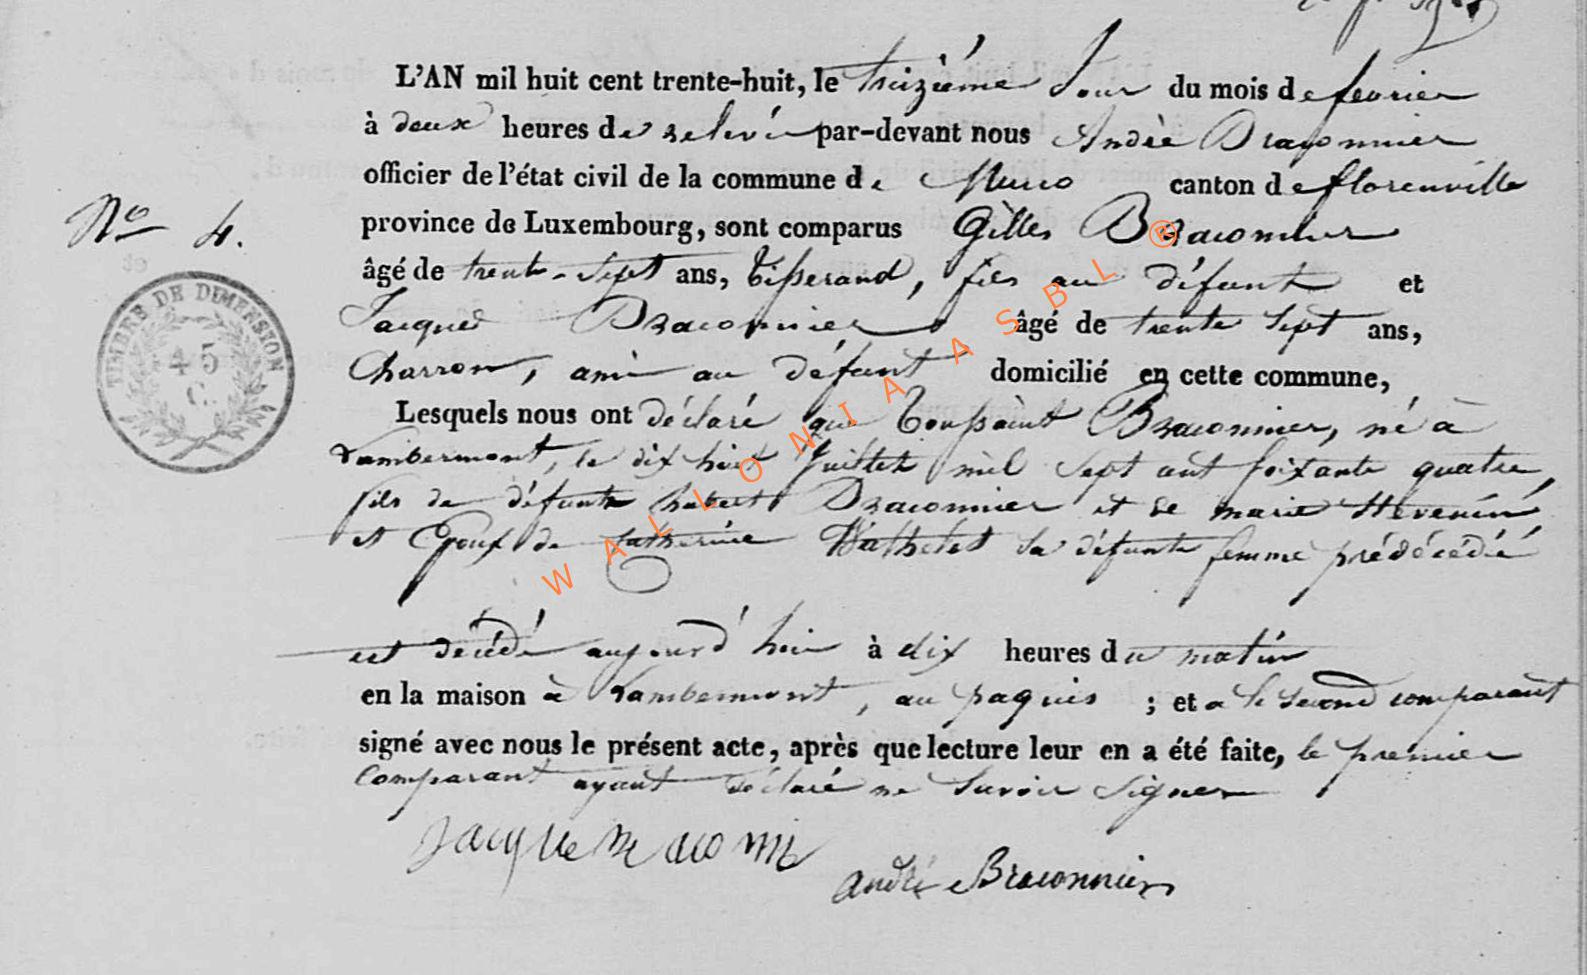 L'AN mil huit cent trente-huit, le treizième Jour du mois de fevrier
à deux heures de relevée par-devant nous Andrè Braconnier
officier de l'état civil de la commune de Muno canton de florenville
province de Luxembourg, sont comparus Gilles Braconnier
âgé de trente-sept ans, Tisserand, fils au défunt et
Jacques Braconnier âgé de trente sept ans,
Charron, ami au défunt domicilié en cette commune,
Lesquels nous ont déclaré que Toussaint Braconnier, né à
Lambermont, le dix huit Juillet mil sept cent soixante quatre,
fils de défunts hubert Braconnier et de marie
et Epoux de Catherine Wathelet sa défunte femme prédécédée
est décédé aujourd'hui à dix heures du matin
en la maison à Lambermont, au paquis ; et a le second comparant
signé avec nous le présent acte, après que lecture leur en a été faite, le premier
Comparant ayant déclaré ne savoir signer
No 4.
TIMBRE DE DIMENSION
45
C.
André Braconnier
WALLONIA ASBL ®